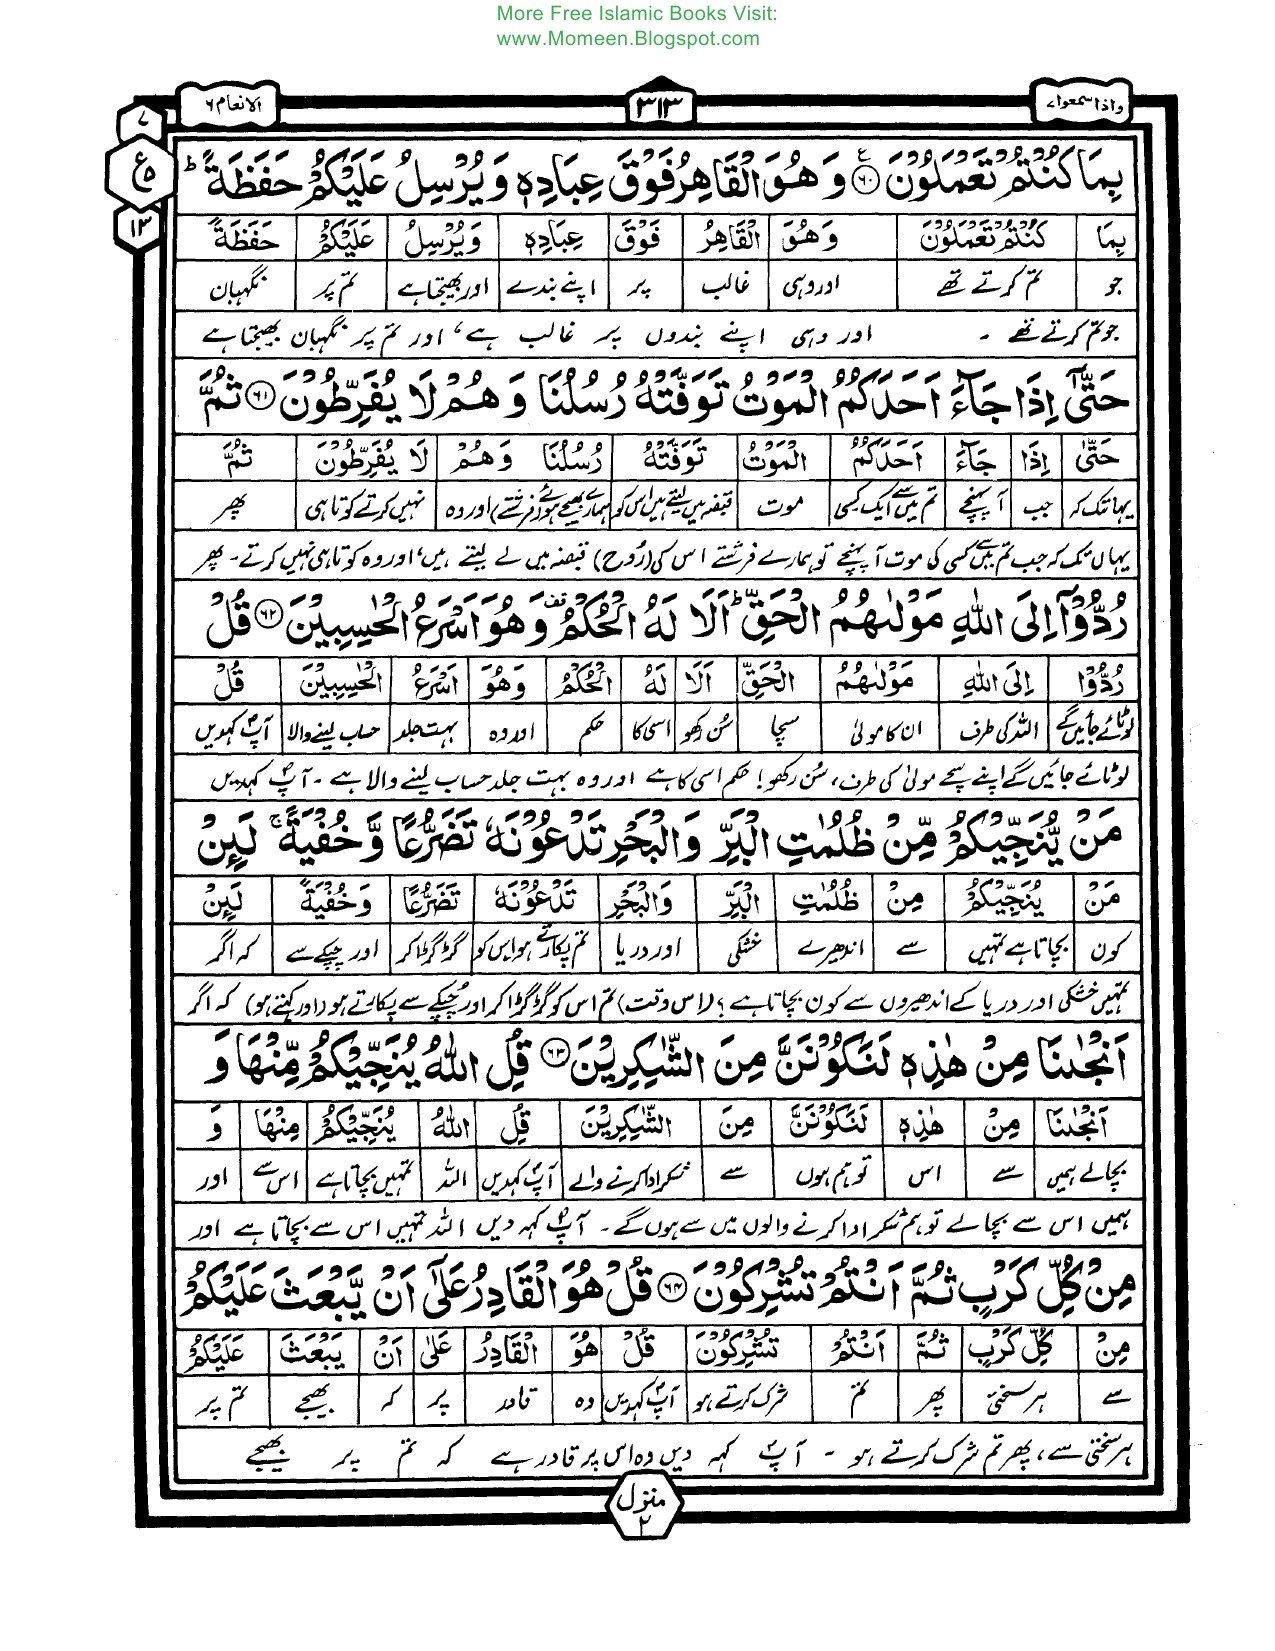 More Free Islamic Books Visit:
www.Momeen.Blogspot.com
واذا سمعوا ۷
۳۱۳
الانعام ۶
۷
ع ۵
۱۳
بِمَا كُنْتُمْ تَعْمَلُوْنَ ﴿۶۰﴾ وَهُوَ الْقَاهِرُ فَوْقَ عِبَادِهٖ وَيُرْسِلُ عَلَيْكُمْ حَفَظَةً ؕ
بِمَا كُنْتُمْ تَعْمَلُوْنَ وَهُوَ الْقَاهِرُ فَوْقَ عِبَادِهٖ وَيُرْسِلُ عَلَيْكُمْ حَفَظَةً
جو تم کرتے تھے اور وہی غالب پر اپنے بندے اور بھیجتا ہے تم پر نگہبان
جو تم کرتے تھے ۔ اور وہی اپنے بندوں پر غالب ہے، اور تم پر نگہبان بھیجتا ہے
حَتّٰۤى اِذَا جَآءَ اَحَدَكُمُ الْمَوْتُ تَوَفَّتْهُ رُسُلُنَا وَهُمْ لَا يُفَرِّطُوْنَ ﴿۶۱﴾ ثُمَّ
حَتّٰى اِذَا جَآءَ اَحَدَكُمُ الْمَوْتُ تَوَفَّتْهُ رُسُلُنَا وَهُمْ لَا يُفَرِّطُوْنَ ثُمَّ
یہانتک کہ جب آپہنچے تم میں سے ایک۔کسی موت قبضہ میں لیتے ہیں اس کو ہمارے بھیجے ہوئے (فرشتے) اور وہ نہیں کرتے کوتاہی پھر
یہاں تک کہ جب تم میں سے کسی کی موت آپہنچے تو ہمارے فرشتے اس کی (رُوح) قبضہ میں لے لیتے ہیں، اور وہ کوتاہی نہیں کرتے۔ پھر
رُدُّوْۤا اِلَى اللّٰهِ مَوْلٰىهُمُ الْحَقِّ ؕ اَلَا لَهُ الْحُكْمُ وَهُوَ اَسْرَعُ الْحٰسِبِيْنَ ﴿۶۲﴾ قُلْ
رُدُّوْۤا اِلَى اللّٰهِ مَوْلٰىهُمُ الْحَقِّ اَلَا لَهُ الْحُكْمُ وَهُوَ اَسْرَعُ الْحٰسِبِيْنَ قُلْ
لوٹائے جائیں گے اللہ کی طرف ان کا مولی سچا سُن رکھو اسی کا حکم اور وہ بہت جلد حساب لینے والا آپؐ کہدیں
لوٹائے جائیں گے اپنے سچے مولیٰ کی طرف، سُن رکھو! حکم اسی کا ہے اور وہ بہت جلد حساب لینے والا ہے ۔ آپؐ کہدیں
مَنْ يُّنَجِّيْكُمْ مِّنْ ظُلُمٰتِ الْبَرِّ وَالْبَحْرِ تَدْعُوْنَهٗ تَضَرُّعًا وَّخُفْيَةً ۚ لَئِنْ
مَنْ يُنَجِّيْكُمْ مِنْ ظُلُمٰتِ الْبَرِّ وَالْبَحْرِ تَدْعُوْنَهٗ تَضَرُّعًا وَخُفْيَةً لَئِنْ
کون بچاتا ہے تمہیں سے اندھیرے خشکی اور دریا تم پکارتے ہو اس کو گڑگڑا کر اور چپکے سے کہ اگر
تمہیں خشکی اور دریا کے اندھیروں سے کون بچاتا ہے؟ (اس وقت) تم اس کو گڑگڑا کر اور چُپکے سے پکارتے ہو (اور کہتے ہو) کہ اگر
اَنْجٰىنَا مِنْ هٰذِهٖ لَنَكُوْنَنَّ مِنَ الشّٰكِرِيْنَ ﴿۶۳﴾ قُلِ اللّٰهُ يُنَجِّيْكُمْ مِّنْهَا وَ
اَنْجٰىنَا مِنْ هٰذِهٖ لَنَكُوْنَنَّ مِنَ الشّٰكِرِيْنَ قُلِ اللّٰهُ يُنَجِّيْكُمْ مِنْهَا وَ
بچالے ہمیں سے اس تو ہم ہوں سے شکر ادا کرنے والے آپؐ کہدیں اللہ تمہیں بچاتا ہے اس سے اور
ہمیں اس سے بچالے تو ہم شکر ادا کرنے والوں میں سے ہوں گے ۔ آپؐ کہہ دیں اللہ تمہیں اس سے بچاتا ہے اور
مِنْ كُلِّ كَرْبٍ ثُمَّ اَنْتُمْ تُشْرِكُوْنَ ﴿۶۴﴾ قُلْ هُوَ الْقَادِرُ عَلٰۤى اَنْ يَّبْعَثَ عَلَيْكُمْ
مِنْ كُلِّ كَرْبٍ ثُمَّ اَنْتُمْ تُشْرِكُوْنَ قُلْ هُوَ الْقَادِرُ عَلٰى اَنْ يَبْعَثَ عَلَيْكُمْ
سے ہر سختی پھر تم شرک کرتے ہو آپؐ کہدیں وہ قادر پر کہ بھیجے تم پر
ہر سختی سے، پھر تم شرک کرتے ہو ۔ آپؐ کہہ دیں وہ اس پر قادر ہے کہ تم پر بھیجے
منزل ۲